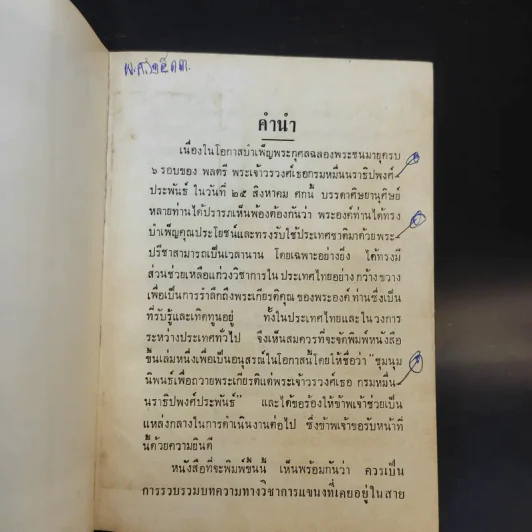 พ.ศ.๒๕๓๓.
คำนำ
เนื่องในโอกาสบำเพ็ญพระกุศลฉลองพระชนมายุครบ
๖ รอบของ พลตรี พระเจ้าวรวงศ์เธอกรมหมื่นนราธิปพงศ์-
ประพันธ์ ในวันที่ ๒๕ สิงหาคม ศกนี้ บรรดาศิษยานุศิษย์
หลายท่านได้ปรารภเห็นพ้องต้องกันว่า พระองค์ท่านได้ทรง
บำเพ็ญคุณประโยชน์และทรงรับใช้ประเทศชาติมาด้วยพระ-
ปรีชาสามารถเป็นเวลานาน โดยเฉพาะอย่างยิ่ง ได้ทรงมี
ส่วนช่วยเหลือแก่วงวิชาการในประเทศไทยอย่างกว้างขวาง
เพื่อเป็นการรำลึกถึงพระเกียรติคุณของพระองค์ท่านซึ่งเป็น
ที่รับรู้และเทิดทูนอยู่ ทั้งในประเทศไทยและในวงการ
ระหว่างประเทศทั่วไป จึงเห็นสมควรที่จะจัดพิมพ์หนังสือ
ขึ้นเล่มหนึ่งเพื่อเป็นอนุสรณ์ในโอกาสนี้โดยให้ชื่อว่า "ชุมนุม
นิพนธ์เพื่อถวายพระเกียรติแด่พระเจ้าวรวงศ์เธอ กรมหมื่น-
นราธิปพงศ์ประพันธ์" และได้ขอร้องให้ข้าพเจ้าช่วยเป็น
แหล่งกลางในการดำเนินงานต่อไป ซึ่งข้าพเจ้าขอรับหน้าที่
นี้ด้วยความยินดี
หนังสือที่จะพิมพ์ขึ้นนี้ เห็นพร้อมกันว่า ควรเป็น
การรวบรวมบทความทางวิชาการแขนงที่เคยอยู่ในสาย